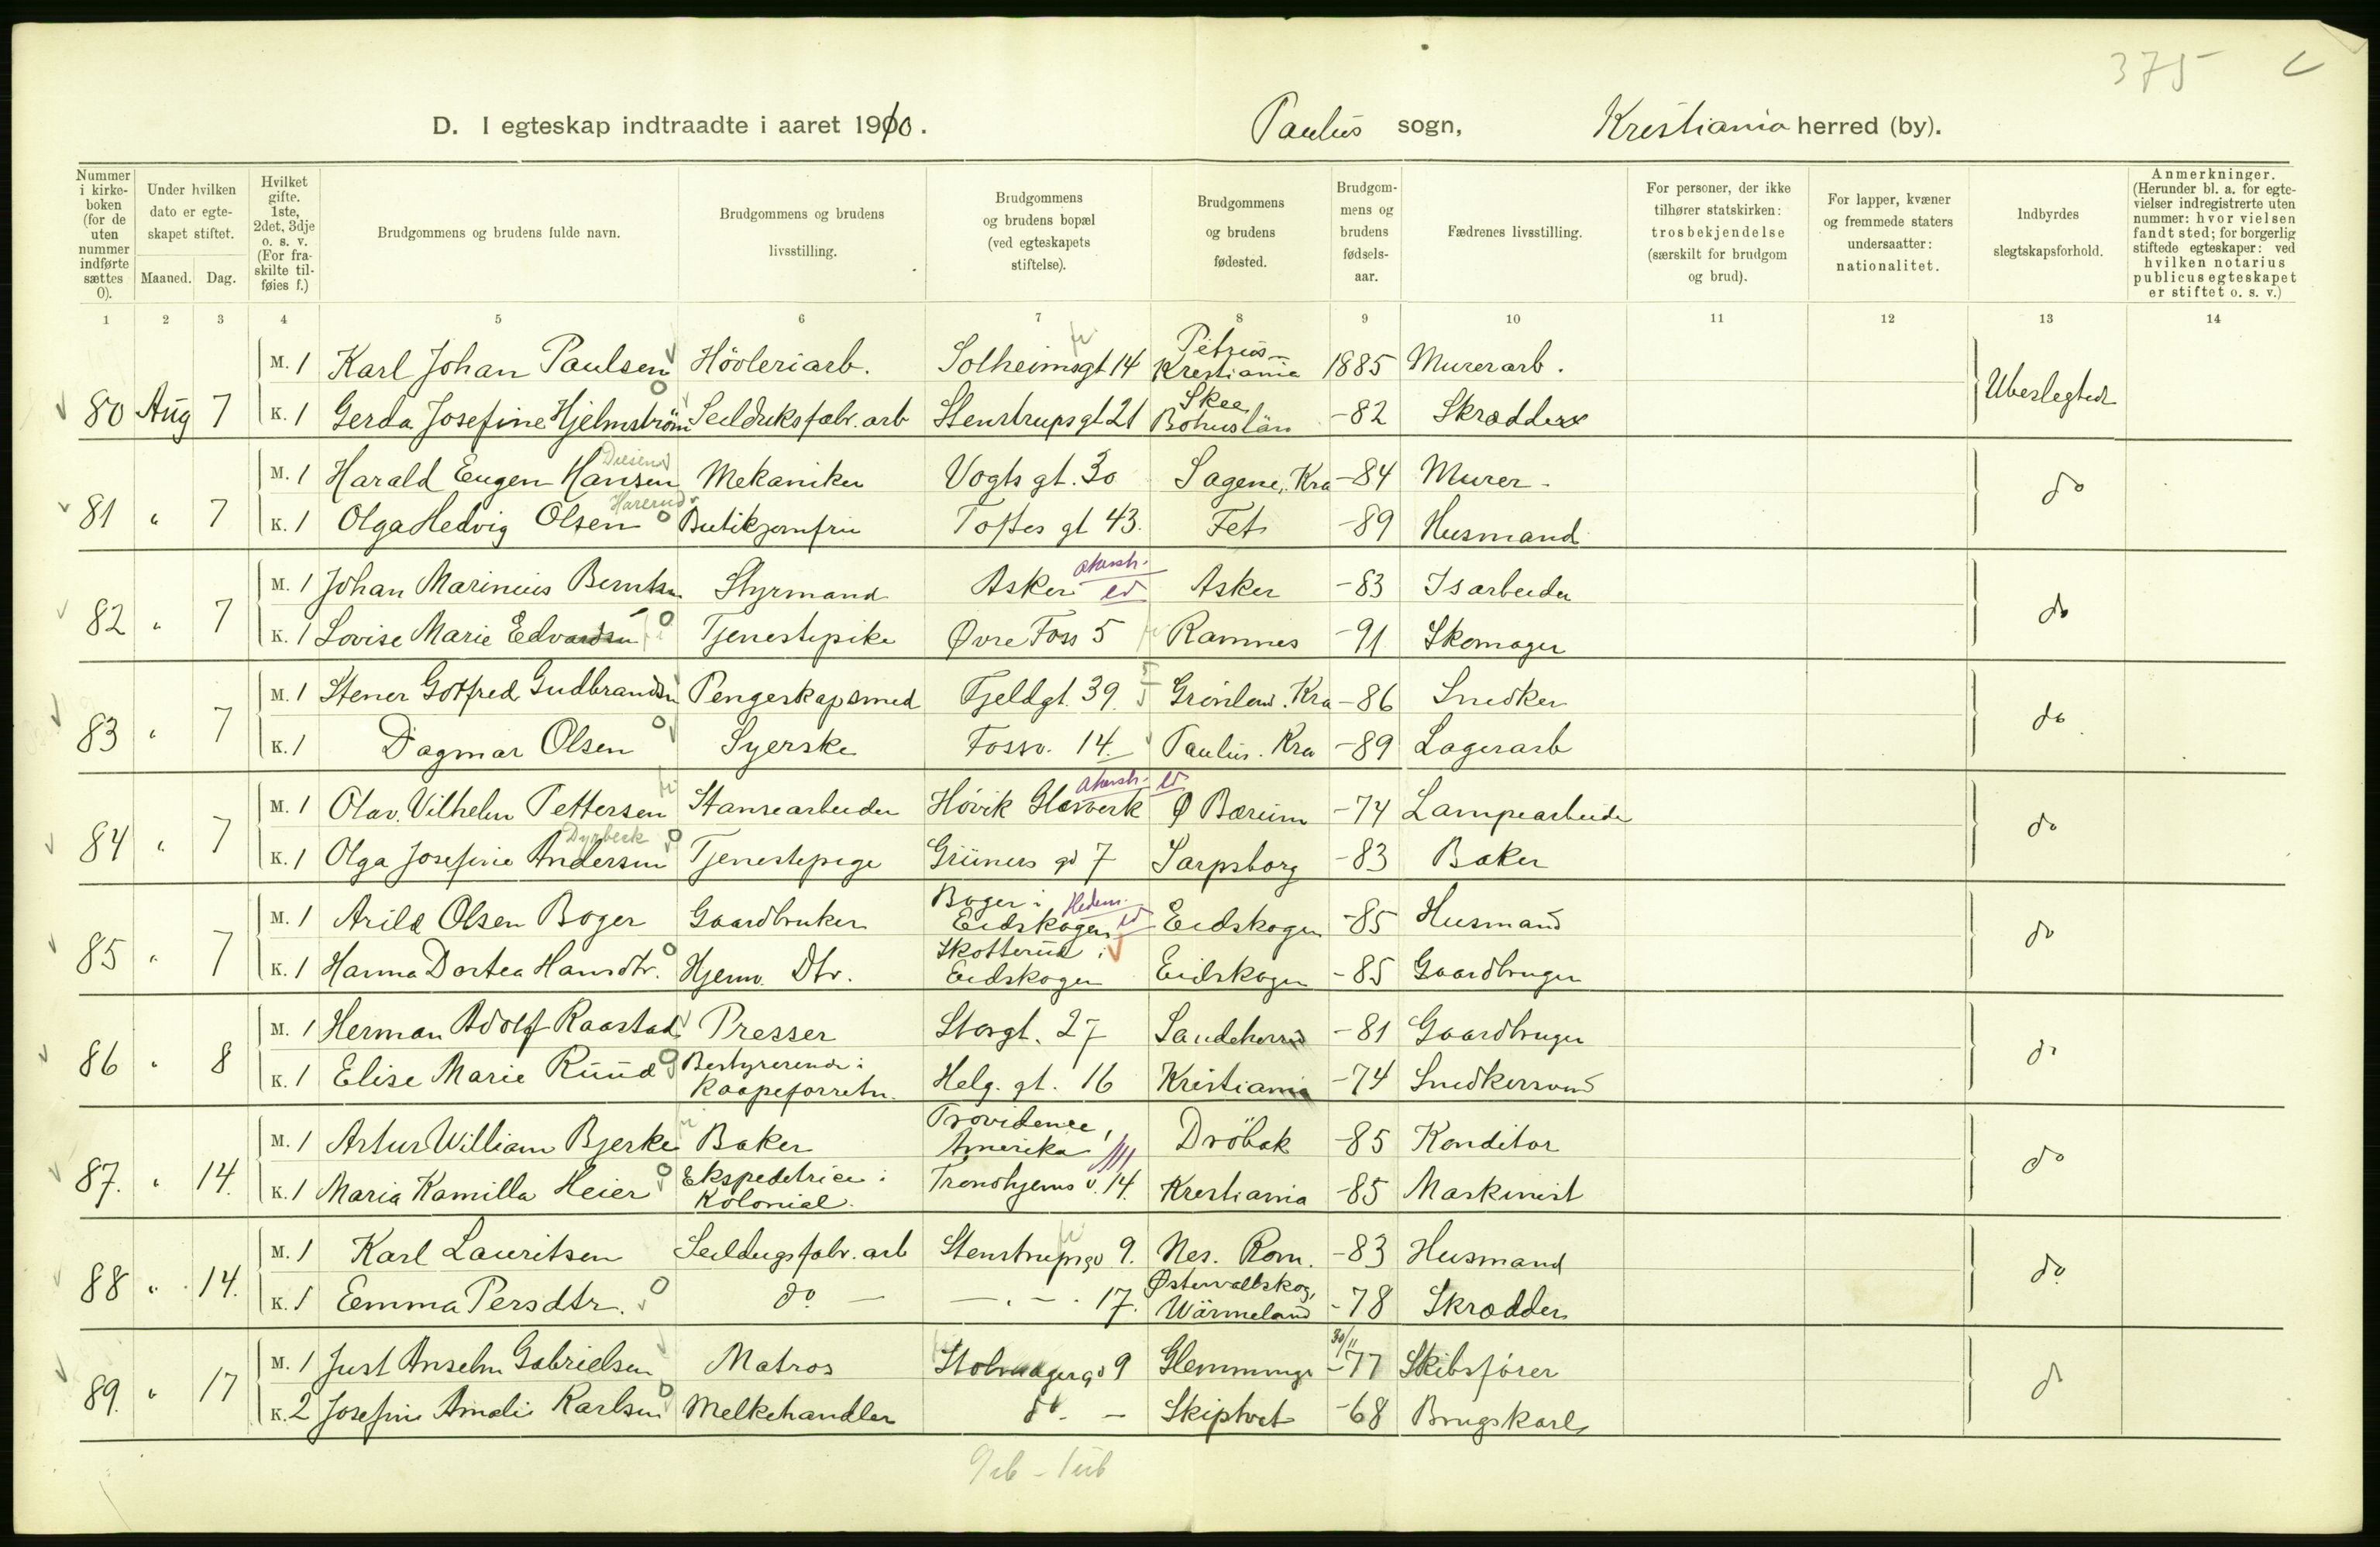 375
D. I egteskap indtraadte i aaret 1910. Paulus sogn, Kristiania herred (by).
Nummer i kirkeboken (for de uten nummer indførte sættes 0).
Under hvilken dato er egteskapet stiftet.
Maaned. Dag.
Hvilket gifte. 1ste, 2det, 3dje o. s. v. (For fraskilte tilføies f.)
Brudgommens og brudens fulde navn.
Brudgommens og brudens livsstilling.
Brudgommens og brudens bopæl (ved egteskapets stiftelse).
Brudgommens og brudens fødested.
Brudgommens og brudens fødselsaar.
Fædrenes livsstilling.
For personer, der ikke tilhører statskirken: trosbekjendelse (særskilt for brudgom og brud).
For lapper, kvæner og fremmede staters undersaatter: nationalitet.
Indbyrdes slegtskapsforhold.
Anmerkninger. (Herunder bl. a. for egtevielser indregistrerte uten nummer: hvor vielsen fandt sted; for borgerlig stiftede egteskaper: ved hvilken notarius publicus egteskapet er stiftet o. s. v.)
1 2 3 4 5 6 7 8 9 10 11 12 13 14
M. 1 Karl Johan Paulsen Høvleriarb. Solheimsgt 14 Petrus Kristiania 1885 Murerarb. Ubeslegtet
80 Aug 7 K. 1 Gerda Josefine Hjelmström Seilduksfabr. arb Stenstrupsgt 21 Skee Bohuslän -82 Skrædder
M. 1 Harald Eugen Hansen Mekaniker Vogts gt. 30 Sagene, Kra -84 Murer do
81 " 7 K. 1 Olga Hedvig Olsen Butikjomfru Toftes gt 43. Fet -89 Husmand
M. 1 Johan Marinius Berntsen Styrmand Asker Akersh. Asker -83 Isarbeider do
82 " 7 K. 1 Lovise Marie Edvardsen Tjenestepike Øvre Foss 5 Ramnes -91 Skomager
M. 1 Stener Gotfred Gudbrandsen Pengeskapsmed Fjeldgt. 39. Grønland. Kra -86 Snedker do
83 " 7 K. 1 Dagmar Olsen Syerske Fossv. 14. Paulus. Kra -89 Lagerarb
M. 1 Olav. Vilhelm Pettersen Stansearbeider Høvik Glasverk Akersh. Ø Bærum -74 Lampearbeider do
84 " 7 K. 1 Olga Josefine Andersen Dyrbeck Tjenestepige Grüners gd 7 Sarpsborg -83 Baker
M. 1 Arild Olsen Boger Gaardbruker Boger i Eidskogen Hedem. Eidskogen -85 Husmand do
85 " 7 K. 1 Hanna Dortea Hansdtr. Hjemv. Dtr. Skotterud i Eidskogen Eidskogen -85 Gaardbruger
M. 1 Herman Adolf Raastad Presser Storgt. 27 Sandeherred -81 Gaardbruger do
86 " 8 K. 1 Elise Marie Ruud Bestyrerinde i Kaapeforretn. Helg. gt. 16 Kristiania -74 Snedkersvend
M. 1 Artur William Bjerke Baker Providence, Amerika Drøbak -85 Konditor do
87. " 14. K. 1 Maria Kamilla Heier Ekspeditrice i Kolonial. Trondhjems v. 14. Kristiania -85 Maskinist
M. 1 Karl Lauritsen Seildugsfabr. arb Stenstrupsgd 9. Nes. Rom. -83 Husmand do
88 " 14. K. 1 Emma Persdtr. do — — " — 17. Østervallskog, Wärmeland -78 Skrædder
M. 1 Just Anselm Gabrielsen Matros Stolmagergd 9 Glemminge 30/11 -77 Skibsfører do
89. " 17 K. 2 Josefine Amalie Karlsen Melkehandler do — Skiptvet -68 Brugskarl